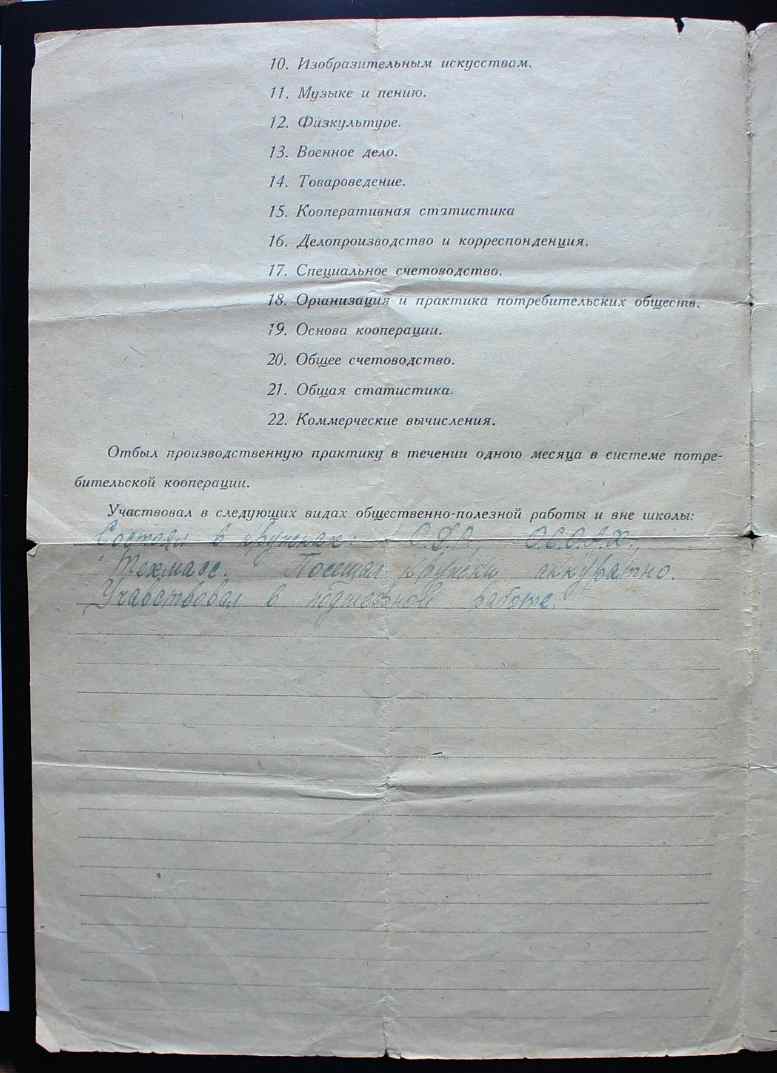 10. Изобразительным искусствам.
11. Музыке и пению.
12. Физкультуре.
13. Военное дело.
14. Товароведение.
15. Кооперативная статистика
16. Делопроизводство и корреспонденция.
17. Специальное счетоводство.
18. Организация и практика потребительских обществ.
19. Основа кооперации.
20. Общее счетоводство.
21. Общая статистика.
22. Коммерческие вычисления.
Отбыл производственную практику в течении одного месяца в системе потре-
бительской кооперации.
Участвовал в следующих видах общественно-полезной работы и вне школы:
Состоял в кружках: О.С.О.А.Х.,
Техмасс. Посещал кружки аккуратно.
Участвовал в работе.